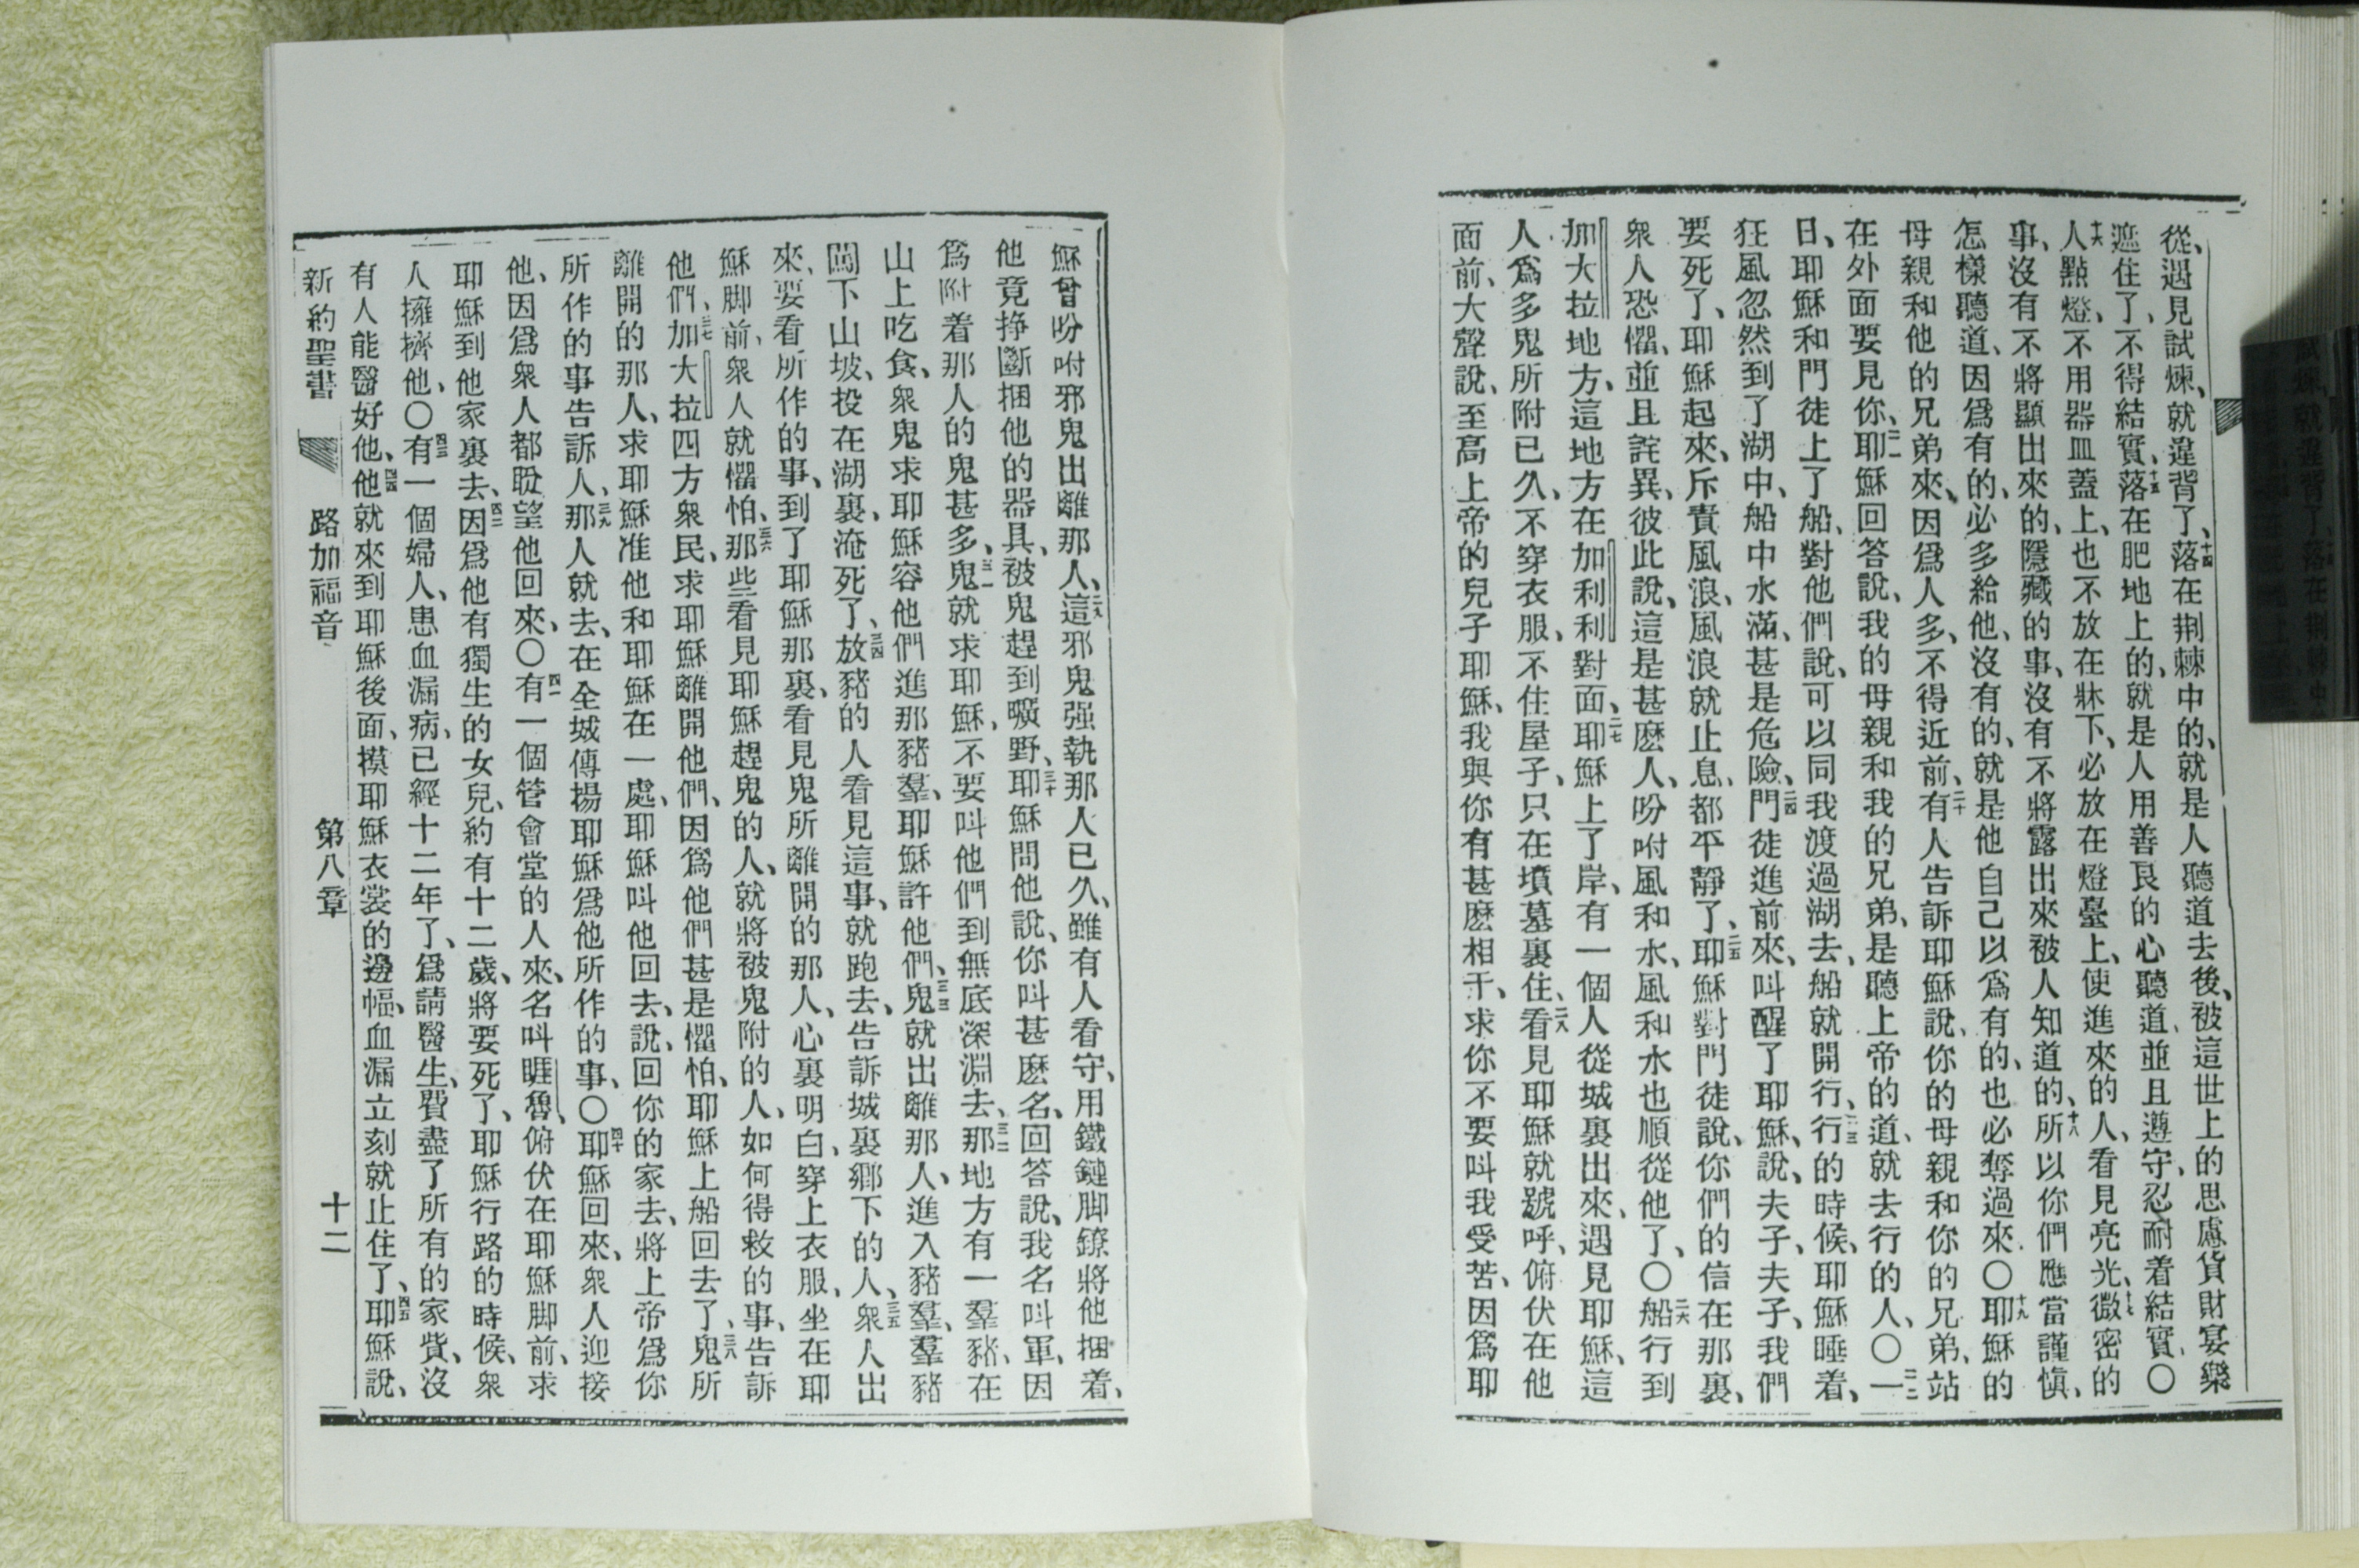 從、遇見試煉、就違背了、十四落在荆棘中的、就是人聽道去後、被這世上的思慮貨財宴樂
遮住了、不得結實、十五落在肥地上的、就是人用善良的心聽道、並且遵守、忍耐着結實、〇
十六人點燈、不用器皿蓋上、也不放在牀下、必放在燈臺上、使進來的人、看見亮光、十七微密的
事、沒有不將顯出來的、隱藏的事、沒有不將露出來被人知道的、十八所以你們應當謹愼、
怎樣聽道、因爲有的、必多給他、沒有的、就是他自己以爲有的、也必奪過來〇十九耶穌的
母親和他的兄弟來、因爲人多、不得近前、二十有人告訴耶穌說、你的母親和你的兄弟、站
在外面要見你、二一耶穌回答說、我的母親和我的兄弟、是聽上帝的道、就去行的人、〇二二一
日、耶穌和門徒上了船、對他們說、可以同我渡過湖去、船就開行、二三行的時候、耶穌睡着、
狂風忽然到了湖中、船中水滿、甚是危險、二四門徒進前來、叫醒了耶穌、說、夫子、夫子、我們
要死了、耶穌起來、斥責風浪、風浪就止息、都平靜了、二五耶穌對門徒說、你們的信在那裏、
衆人恐懼、並且詫異、彼此說、這是甚麽人、吩咐風和水、風和水也順從他了、〇二六船行到
加大拉地方、這地方在加利利對面、二七耶穌上了岸、有一個人從城裏出來、遇見耶穌、這
人爲多鬼所附已久、不穿衣服、不住屋子、只在墳墓裏住、二八看見耶穌就號呼、俯伏在他
面前、大聲說、至高上帝的兒子耶穌、我與你有甚麽相干、求你不要叫我受苦、因爲耶
穌曾吩咐邪鬼出離那人、二九這邪鬼强執那人已久、雖有人看守、用鐵鏈脚鐐將他捆着、
他竟掙斷捆他的器具、被鬼趕到曠野、三十耶穌問他說、你叫甚麽名、回答說、我名叫軍、因
爲附着那人的鬼甚多、三一鬼就求耶穌、不要叫他們到無底深淵去、三二那地方有一羣豬、在
山上吃食、衆鬼求耶穌容他們進那豬羣、耶穌許他們、三三鬼就出離那人、進入豬羣、羣豬
闖下山坡、投在湖裏、淹死了、三四放豬的人看見這事、就跑去、告訴城裏鄉下的人、三五衆人出
來、要看所作的事、到了耶穌那裏、看見鬼所離開的那人、心裏明白、穿上衣服、坐在耶
穌脚前、衆人就懼怕、三六那些看見耶穌趕鬼的人、就將被鬼附的人、如何得救的事、告訴
他們、三七加大拉四方衆民、求耶穌離開他們、因爲他們甚是懼怕、耶穌上船回去了、三八鬼所
離開的那人、求耶穌准他和耶穌在一處、耶穌叫他回去、說、回你的家去、將上帝爲你
所作的事告訴人、三九那人就去、在全城傳揚耶穌爲他所作的事、〇四十耶穌回來、衆人迎接
他、因爲衆人都盼望他回來、〇四一有一個管會堂的人來、名叫睚魯、俯伏在耶穌脚前、求
耶穌到他家裏去、四二因爲他有獨生的女兒、約有十二歲、將要死了、耶穌行路的時候、衆
人擁擠他、〇四三有一個婦人、患血漏病、已經十二年了、爲請醫生、費盡了所有的家貲、沒
有人能醫好他、四四他就來到耶穌後面、摸耶穌衣裳的邊幅、血漏立刻就止住了、四五耶穌說、
新約聖書 路加福音 第八章 十二